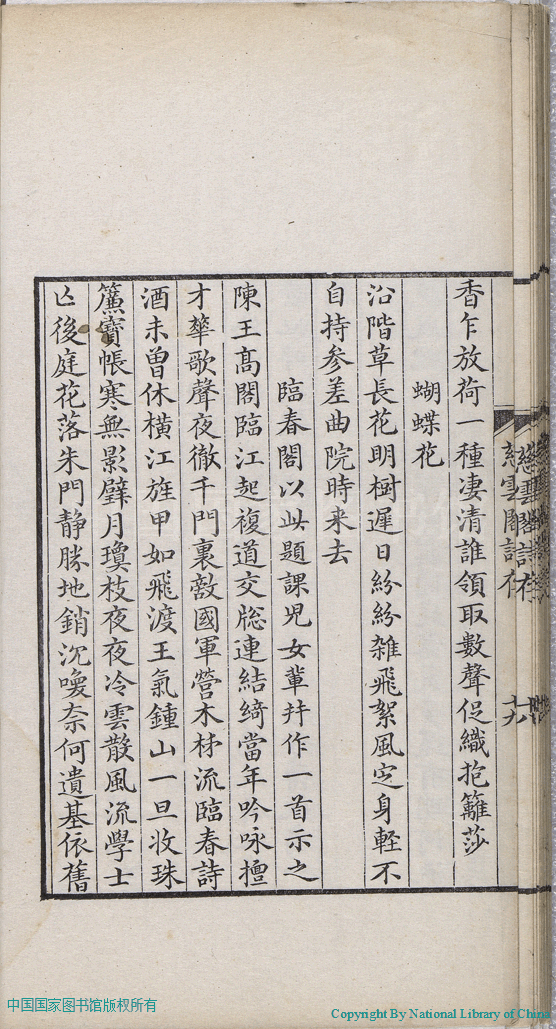 香乍放荷一種凄清誰領取數聲促織抱籬莎
蝴蝶花
沿階草長花明樹遲日紛紛雜飛絮風定身輕不
自持参差曲院時来去
臨春閣以此題課児女輩并作一首示之
陳王髙閣臨江起複道交牎連結綺當年吟咏擅
才華歌聲夜徹千門裏敵國軍營木柹流臨春詩
酒未曽休横江旌甲如飛渡王氣鍾山一旦收珠
簾寳帳寒無影璧月瓊枝夜夜冷雲散風流學士
亾後庭花落朱門静勝地銷沉嘆奈何遺基依舊
慈雲閣詩存
十九
中国国家图书馆版权所有
Copyright By National Library of China